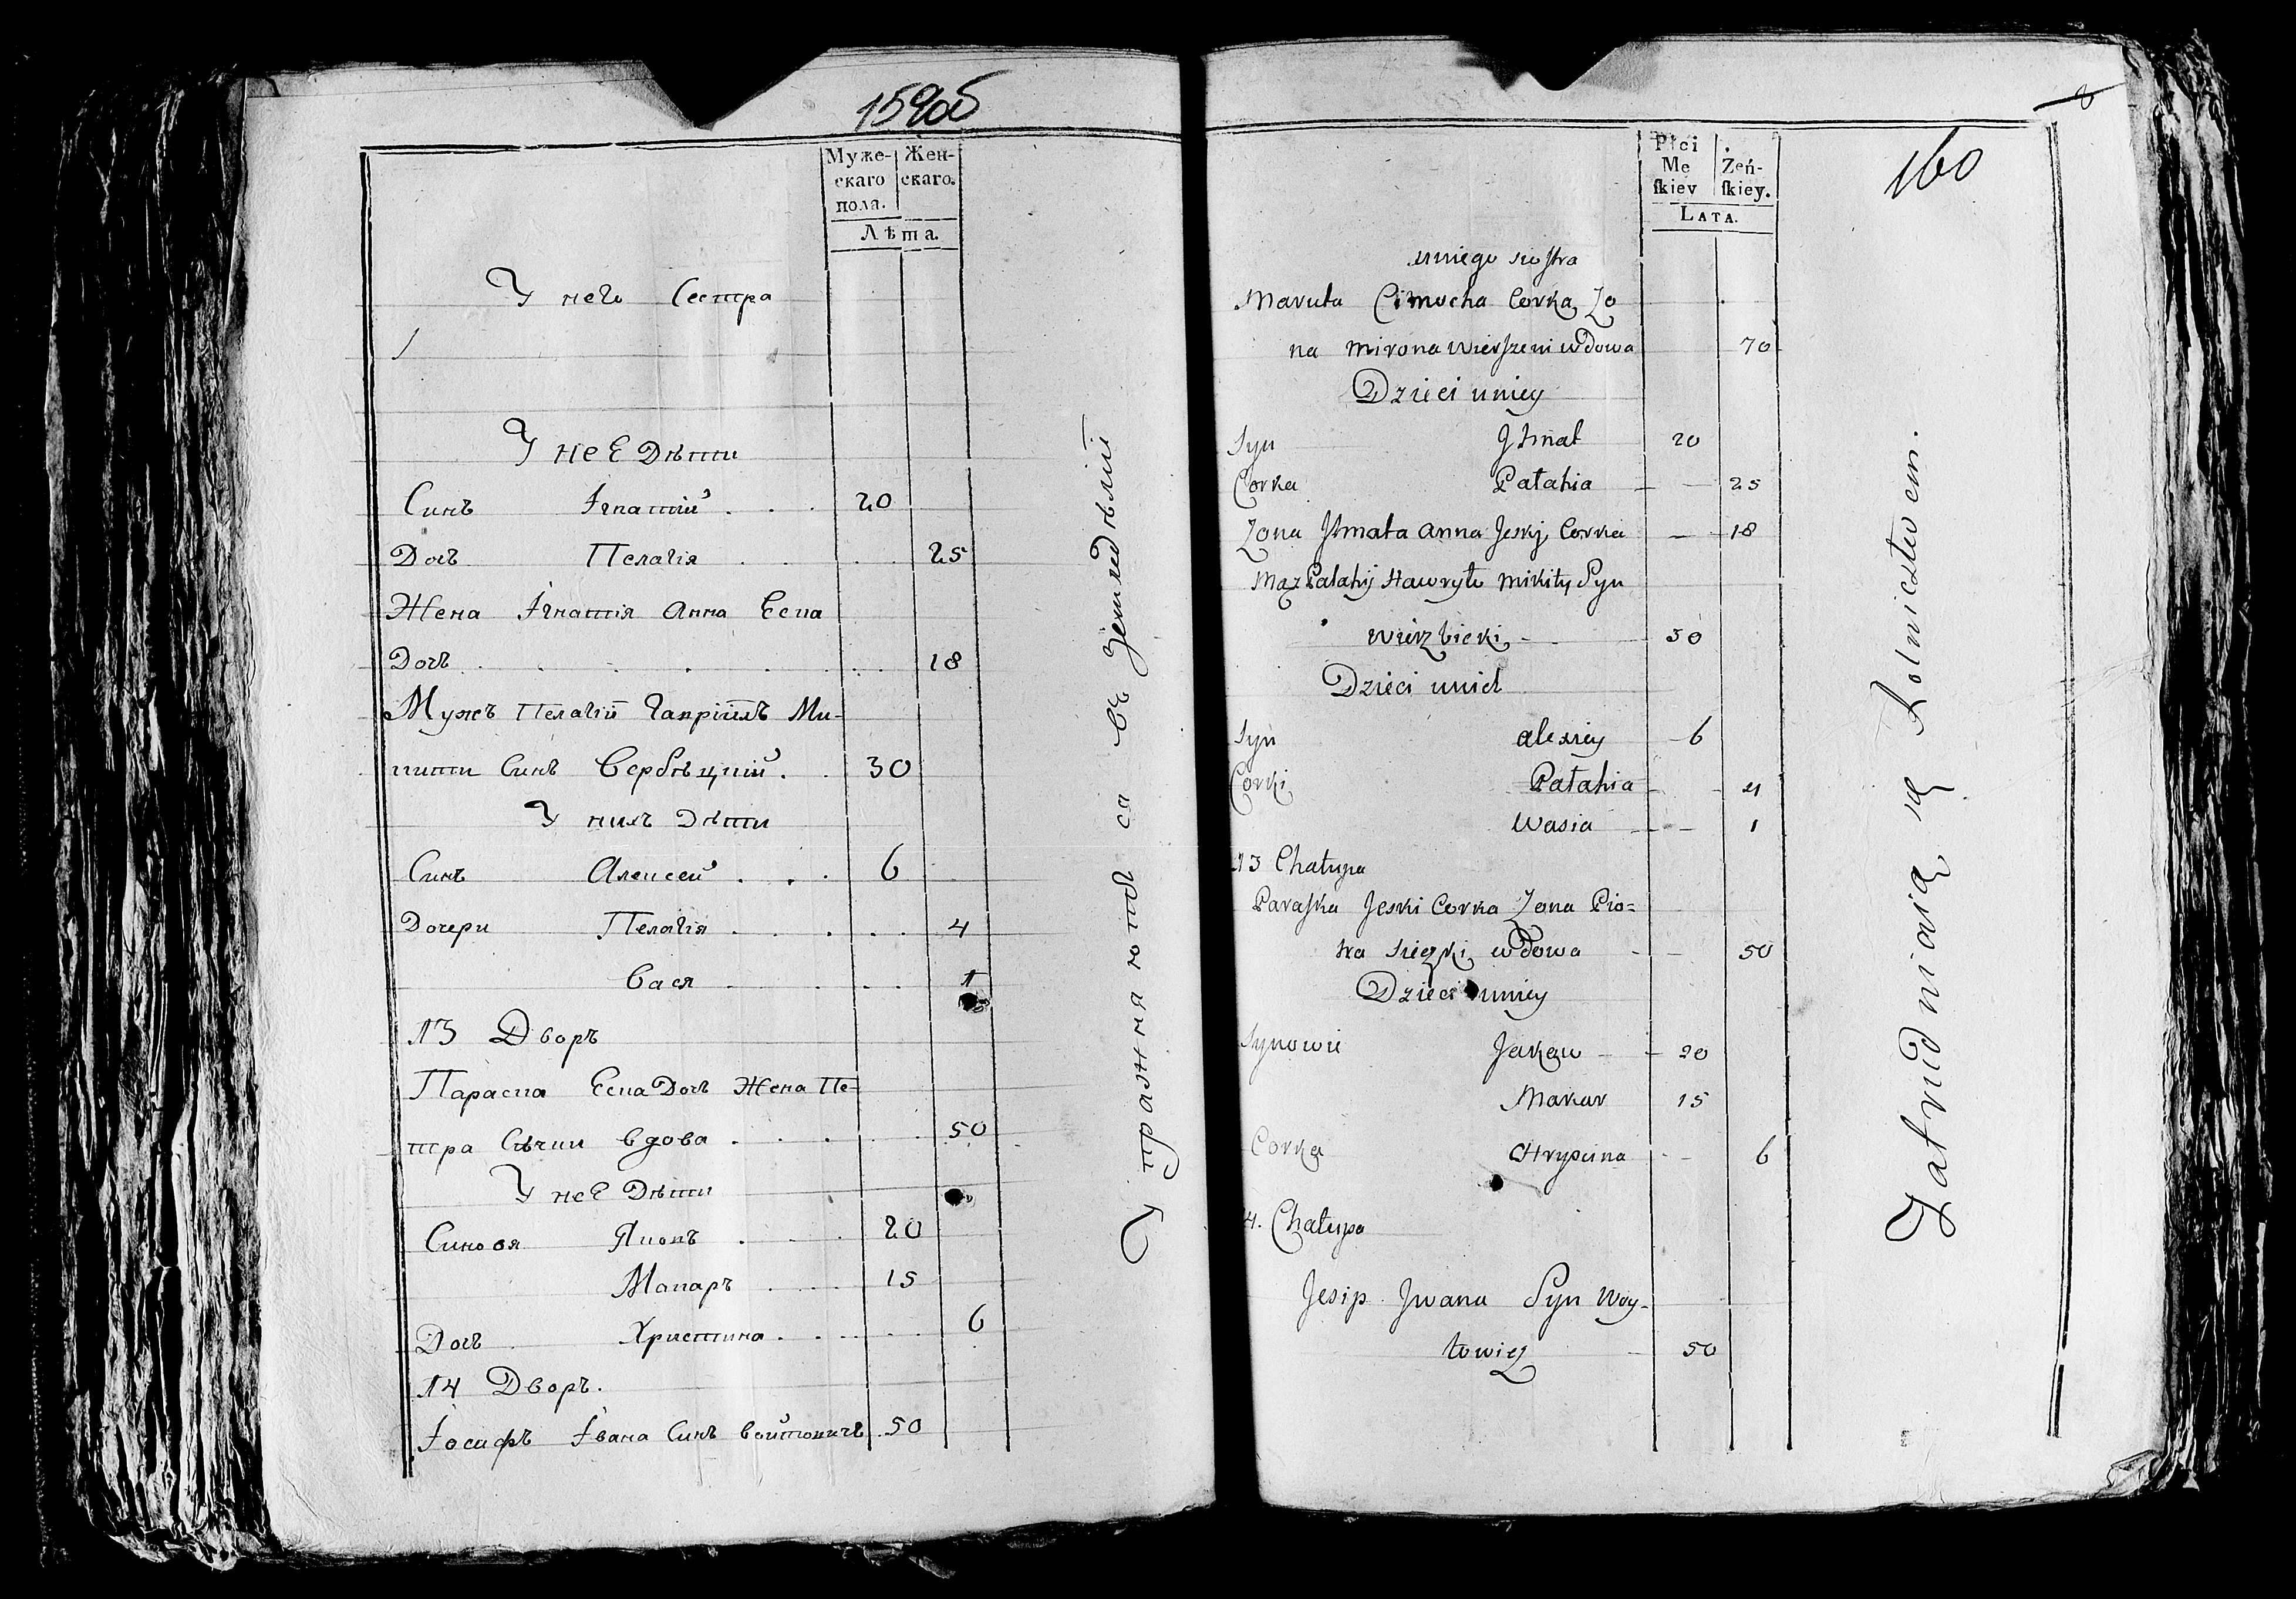 159об
Муже-
скаго
пола.
Жен-
скаго.
Лѣта.
У него Сестра
У неЕ Дѣти
Синъ Ігнатій . . . 20
Дочъ Пелагія . . . 25
Жена Ігнатія Анна Еска
Дочъ . . . . . 18
Мужъ Пелагіи Гавріилъ Ми-
кити Синъ Вербѣцкій . . 30
У нихъ Дѣти
Синъ Алексей . . . 6
Дочери Пелагія . . . . . 4
Вася . . . . 1
13 Дворъ
Параска Еска Дочъ Жена Пе-
тра Сѣчки Вдова . . . . 50
У неЕ Дѣти
Синовя Яковъ . . . 20
Макаръ . . . 15
Дочъ Христина . . . . 6
14 Дворъ.
Іосифъ Івана Синъ Войтовичъ . 50
Упражняютъ ся въ земледѣліи
8
160
Płci
Mę
skiey
Żeń-
skiey.
LATA.
uniego siostra
Maruta Cimocha Corka Zo
na Mirona Wierszeni wdowa 70
Dzieci uniey
Syn Ihnat 20
Corka Pałahia 25
Zona Ihnata Anna Jeski Corka 18
Mąz Pałahij Hawryło Mikity Syn
Wierzbicki 30
Dzieci unich
Syn Alexiey 6
Corki Pałahia 4
Wasia 1
13 Chałupa
Paraska Jeski Corka Zona Pio-
tra Sieczki wdowa 50
Dzieci uniey
Synowie Jakow 20
Makar 15
Corka Hrypina 6
4. Chałupa
Jesip Jwana Syn Woy-
towicz 50
Zatrudniaią się Rolnictwem.